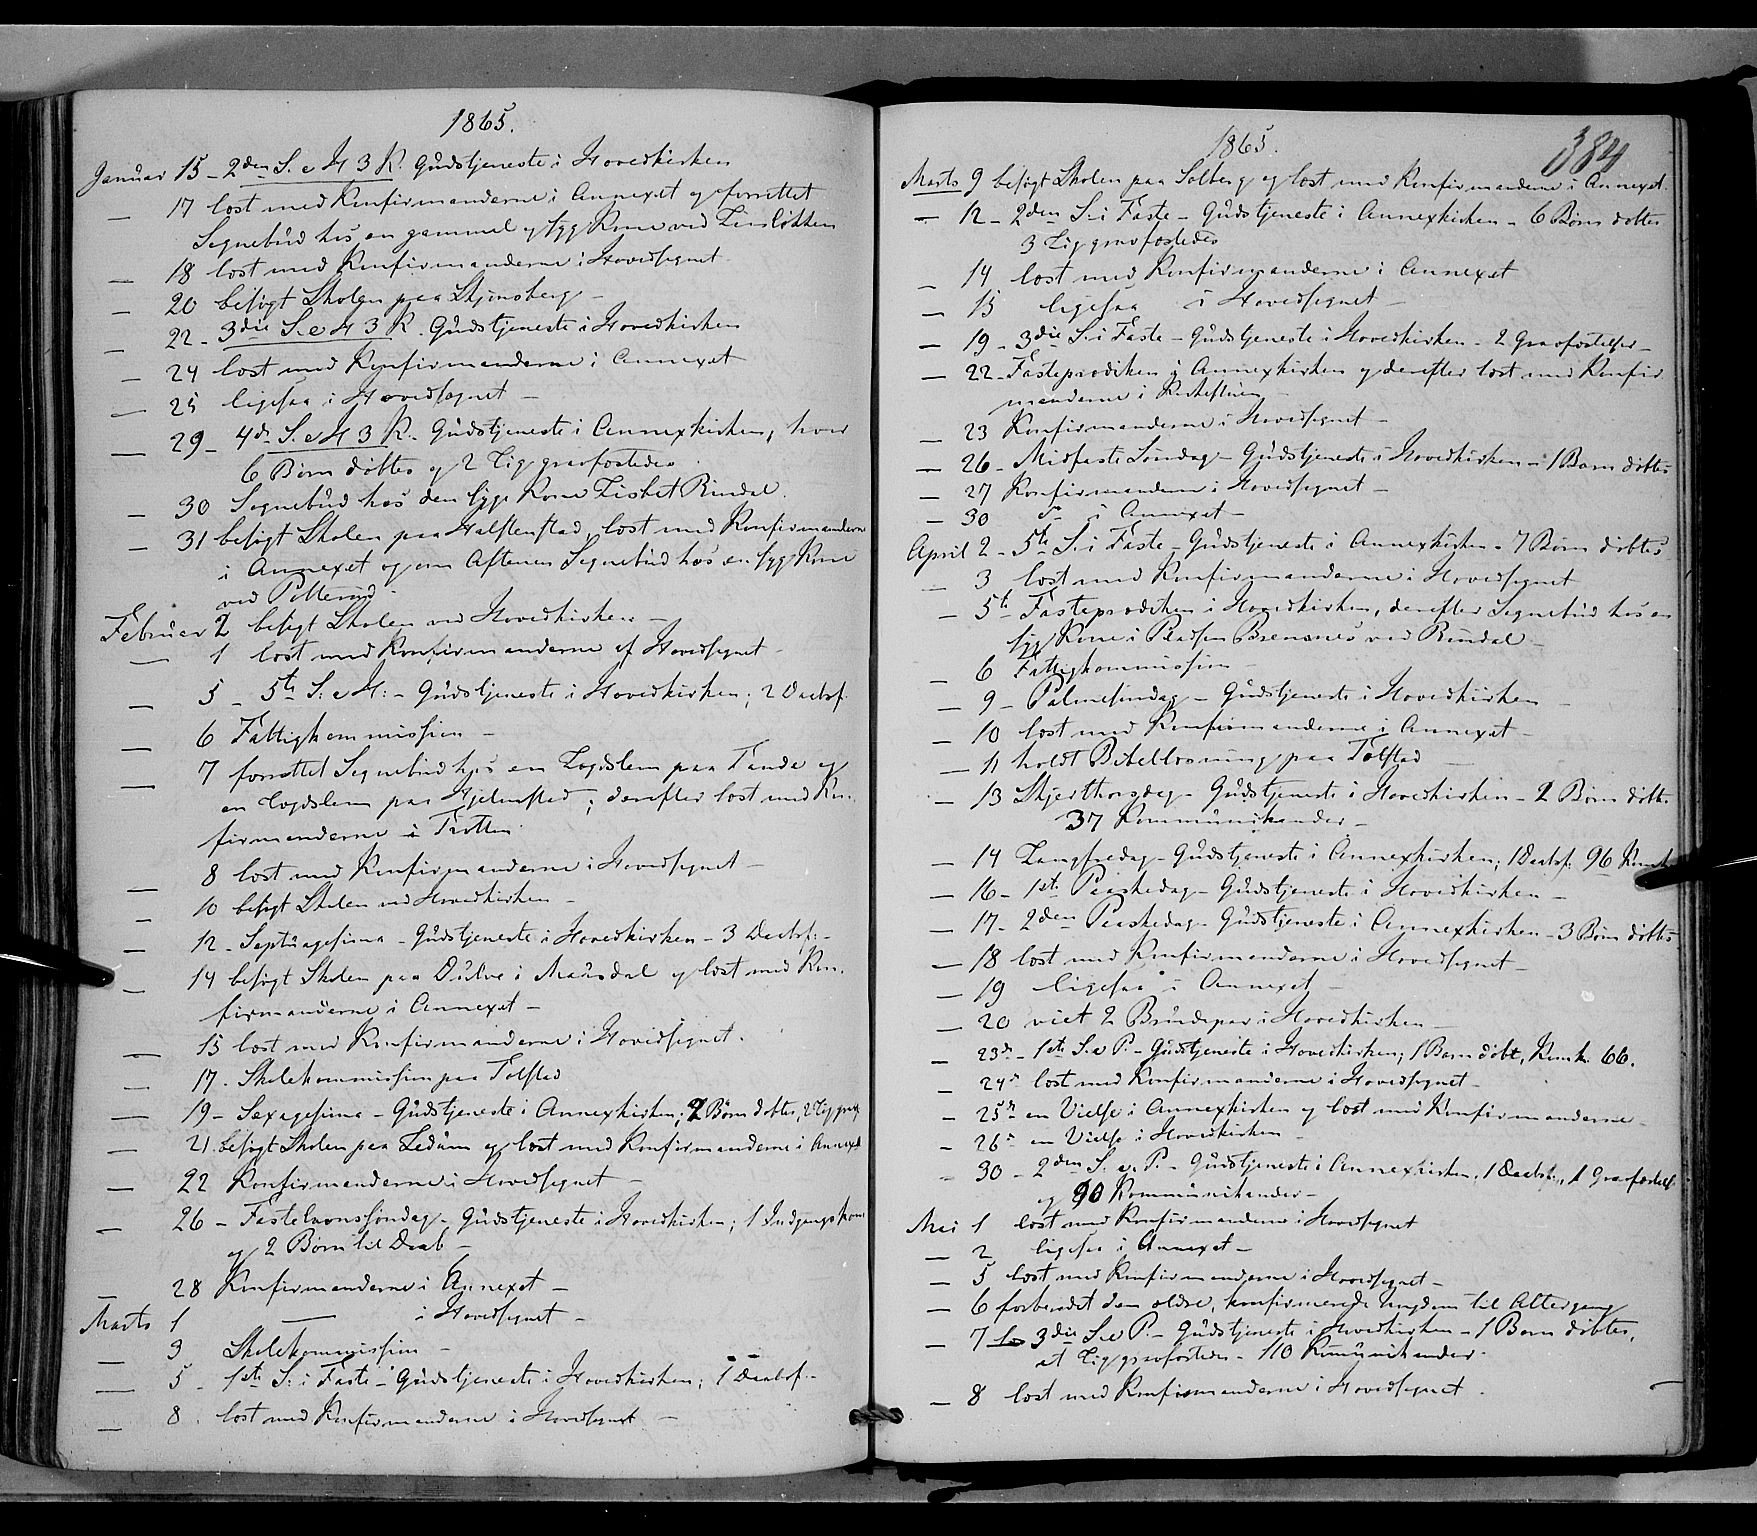 1865.
Januar 15 - 2den S. e H 3 K. Gudstjeneste i Hovedkirken
— 17 læst med Konfirmanderne i Annexet og forrettet
Sognebud hos en gammel syg Kone ved
— 18 læst med Konfirmanderne i Hovedsognet
— 20 besøgt Skolen paa Skjønsberg -
— 22 - 3die S. e H 3 K. Gudstjeneste i Hovedkirken
— 24 læst med Konfirmanderne i Annexet
— 25 ligesaa i Hovedsognet -
— 29 - 4de S. e H 3 K. Gudstjeneste i Annexkirken, hvor
6 Børn døbtes og 2 Lig gravfæstedes
— 30 Sognebud hos den syge Kone Lisbet Rindal.
— 31 besøgt Skolen paa Halstenstad, læst med Konfirmanderne
i Annexet og om Aftenen Sognebud hos en syg Kone
ved
Februar 2 besøgt Skolen ved Hovedkirken -
— 1 læst med Konfirmanderne af Hovedsognet -
— 5 - 5te S. e H: - Gudstjeneste i Hovedkirken; 2 Daabsf.
— 6 Fattigkommission -
— 7 forrettet Sognebud hos en Lægdslem paa Tande og
en Lægdslem paa Hjelmstad; derefter læst med Kon-
firmanderne i Tretten
— 8 læst med Konfirmanderne i Hovedsognet -
— 10 besøgt Skolen ved Hovedkirken -
— 12 - Septuagesima - Gudstjeneste i Hovedkirken - 3 Daabsf: -
— 14 besøgt Skolen paa i Musdal og læst med Kon-
firmanderne i Annexet -
— 15 læst med Konfirmanderne i Hovedsognet.
— 17. Skolekommission paa Tolstad
— 19 - Sexagesima - Gudstjeneste i Annexkirken; 2 Børn døbtes, 2 Lig grf
— 21. besøgt Skolen paa Ledum og læst med Konfirmanderne i Annexet
— 22 Konfirmanderne i Hovedsognet -
— 26 - Fastelavnssøndag - Gudstjeneste i Hovedkirken; 1 Indgangskone
og 2 Børn til Daab -
— 28 Konfirmanderne i Annexet -
Marts 1 — i Hovedsognet -
— 3 Skolekommission -
— 5 - 1ste S. i Faste - Gudstjeneste i Hovedkirken; 1 Daabsf. -
— 8. læst med Konfirmanderne i Hovedsognet -
1865.
384
Marts 9 besøgt Skolen paa Solberg og læst med Konfirmanderne i Annexet.
— 12 - 2den S. i Faste - Gudstjeneste i Annexkirken - 6 Børn døbtes
3 Lig gravfæstedes
— 14 læst med Konfirmanderne i Annexet
— 15 ligesaa i Hovedsognet -
— 19 - 3die S. i Faste - Gudstjeneste i Hovedkirken - 2 Gravfæstelser -
— 22 - Fasteprædiken i Annexkirken og derefter læst med Konfir
manderne i Kirkestuen
— 23 Konfirmanderne i Hovedsognet -
— 26 - Midfaste Søndag - Gudstjeneste i Hovedkirken - 1 Barn døbtes
— 27 Konfirmanderne i Hovedsognet -
— 30 do i Annexet -
April 2 - 5te S. i Faste - Gudstjeneste i Annexkirken - 7 Børn døbtes
— 3 læst med Konfirmanderne i Hovedsognet
— 5te Fasteprædiken i Hovedkirken, derefter Sognebud hos en
syg Kone i Pladsen ved Rindal -
— 6 Fattigkommission
— 9 - Palmesøndag - Gudstjeneste i Hovedkirken
— 10 læst med Konfirmanderne i Annexet -
— 11 holdt Bibellæsning paa Tolstad
— 13 Skjærthorsdag - Gudstjeneste i Hovedkirken - 2 Børn døbtes
37 Kommunikander -
— 14 Langfredag - Gudstjeneste i Annexkirken; 1 Daabsf. 96 Komk
— 16 - 1ste Paaskedag - Gudstjeneste i Hovedkirken -
— 17 - 2den Paaskedag - Gudstjeneste i Annexkirken - 3 Børn døbtes
— 18 læst med Konfirmanderne i Hovedsognet -
— 19 ligesaa i Annexet -
— 20 viet 2 Brudepar i Hovedkirken
— 23de - 1ste S. e P. - Gudstjeneste i Hovedkirken; 1 Barn døbt, Komk. 66.
— 24de læst med Konfirmanderne i Hovedsognet -
— 25de en Vielse i Annexkirken og læst med Konfirmanderne -
— 26de en Vielse i Hovedkirken -
— 30 - 2den S. e. P. - Gudstjeneste i Annexkirken, 1 Daabsf., 1 Gravfæstelse
og 90 Kommunikander -
Mai 1 læst med Konfirmanderne i Hovedsognet
— 2 ligesaa i Annexet -
— 5 læst med Konfirmanderne i Hovedsognet -
— 6 forberedt den ældre, konfirmerede Ungdom til Altergang
— 7 3die S. e P. - Gudstjeneste i Hovedkirken - 1 Barn døbtes,
et Lig gravfæstedes - 110 Kommunikander.
— 8 læst med Konfirmanderne i Hovedsognet.